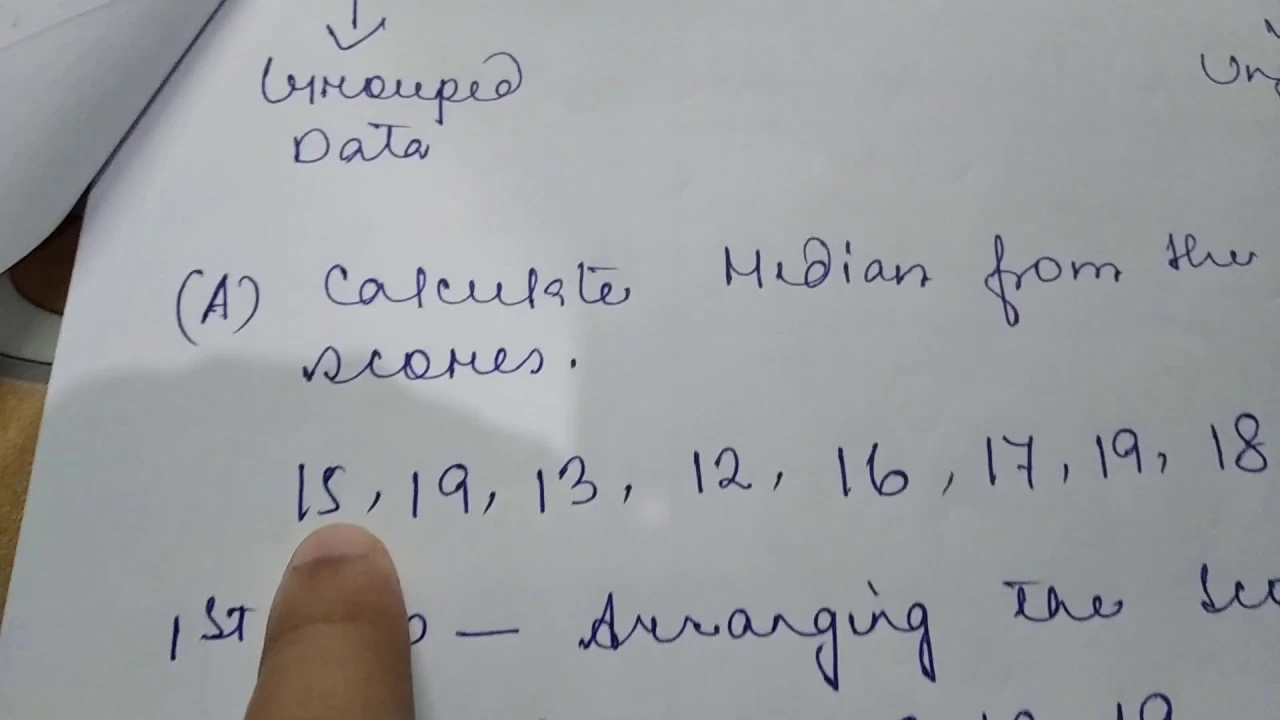 Grouped
Data
(A) Calculate Median from the
scores.
15, 19, 13, 12, 16, 17, 19, 18
1st — Arranging the